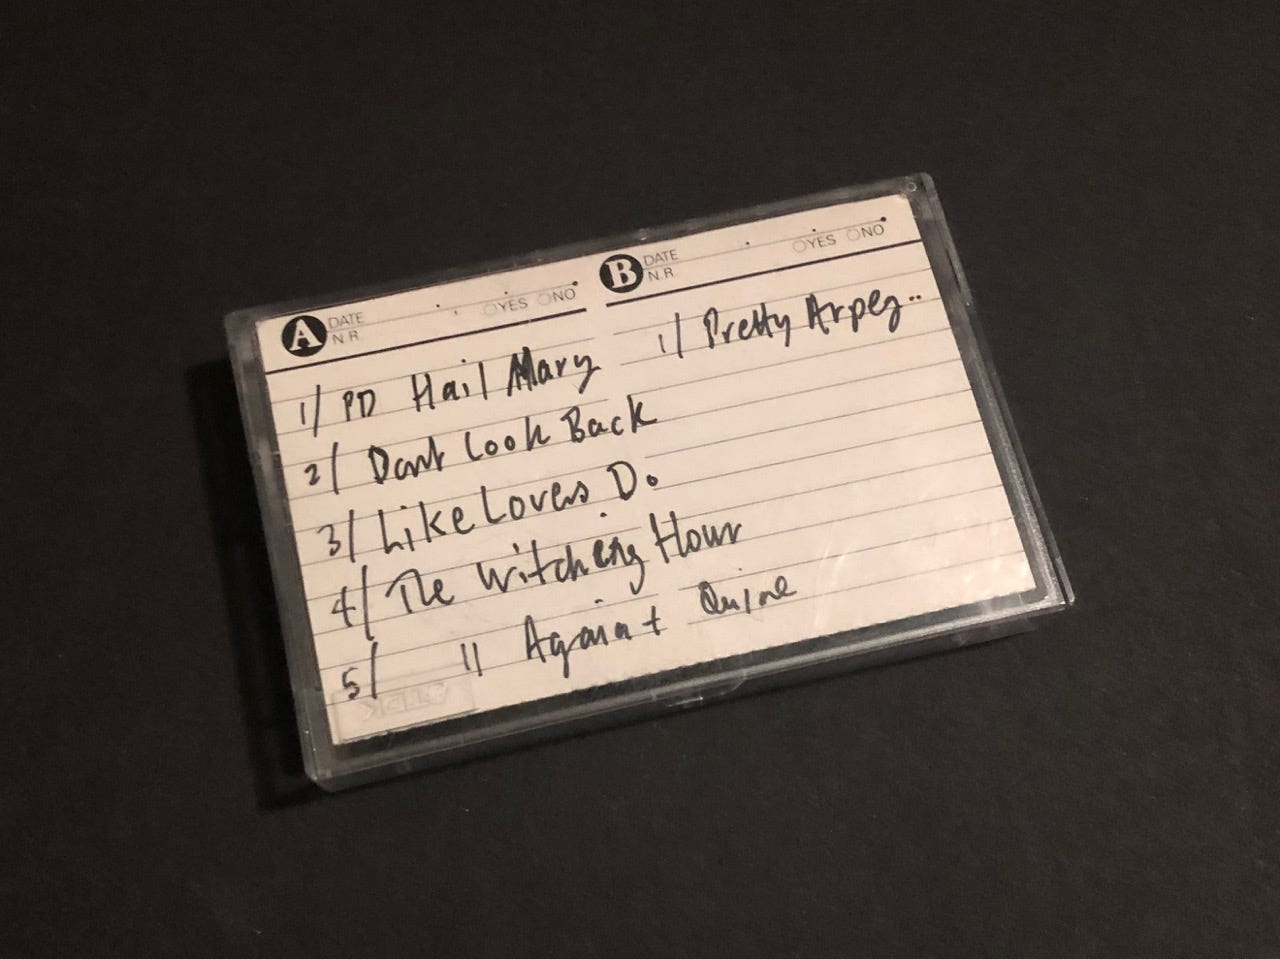 A DATE N.R YES NO
B DATE N.R YES NO
1/ PD Hail Mary
2/ Dont Look Back
3/ Like Lovers Do
4/ The Witching Hour
5/ " Again +
1/ Pretty Arpeg..